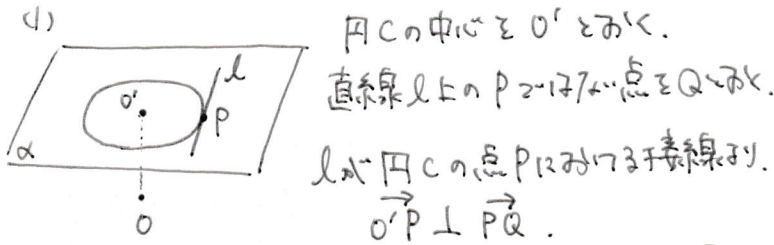 (1)
円Cの中心をO'とおく.
直線l上のPではない点をQとおく.
lが円Cの点Pにおける接線より.
O'P ⊥ PQ.
O'
l
P
α
O